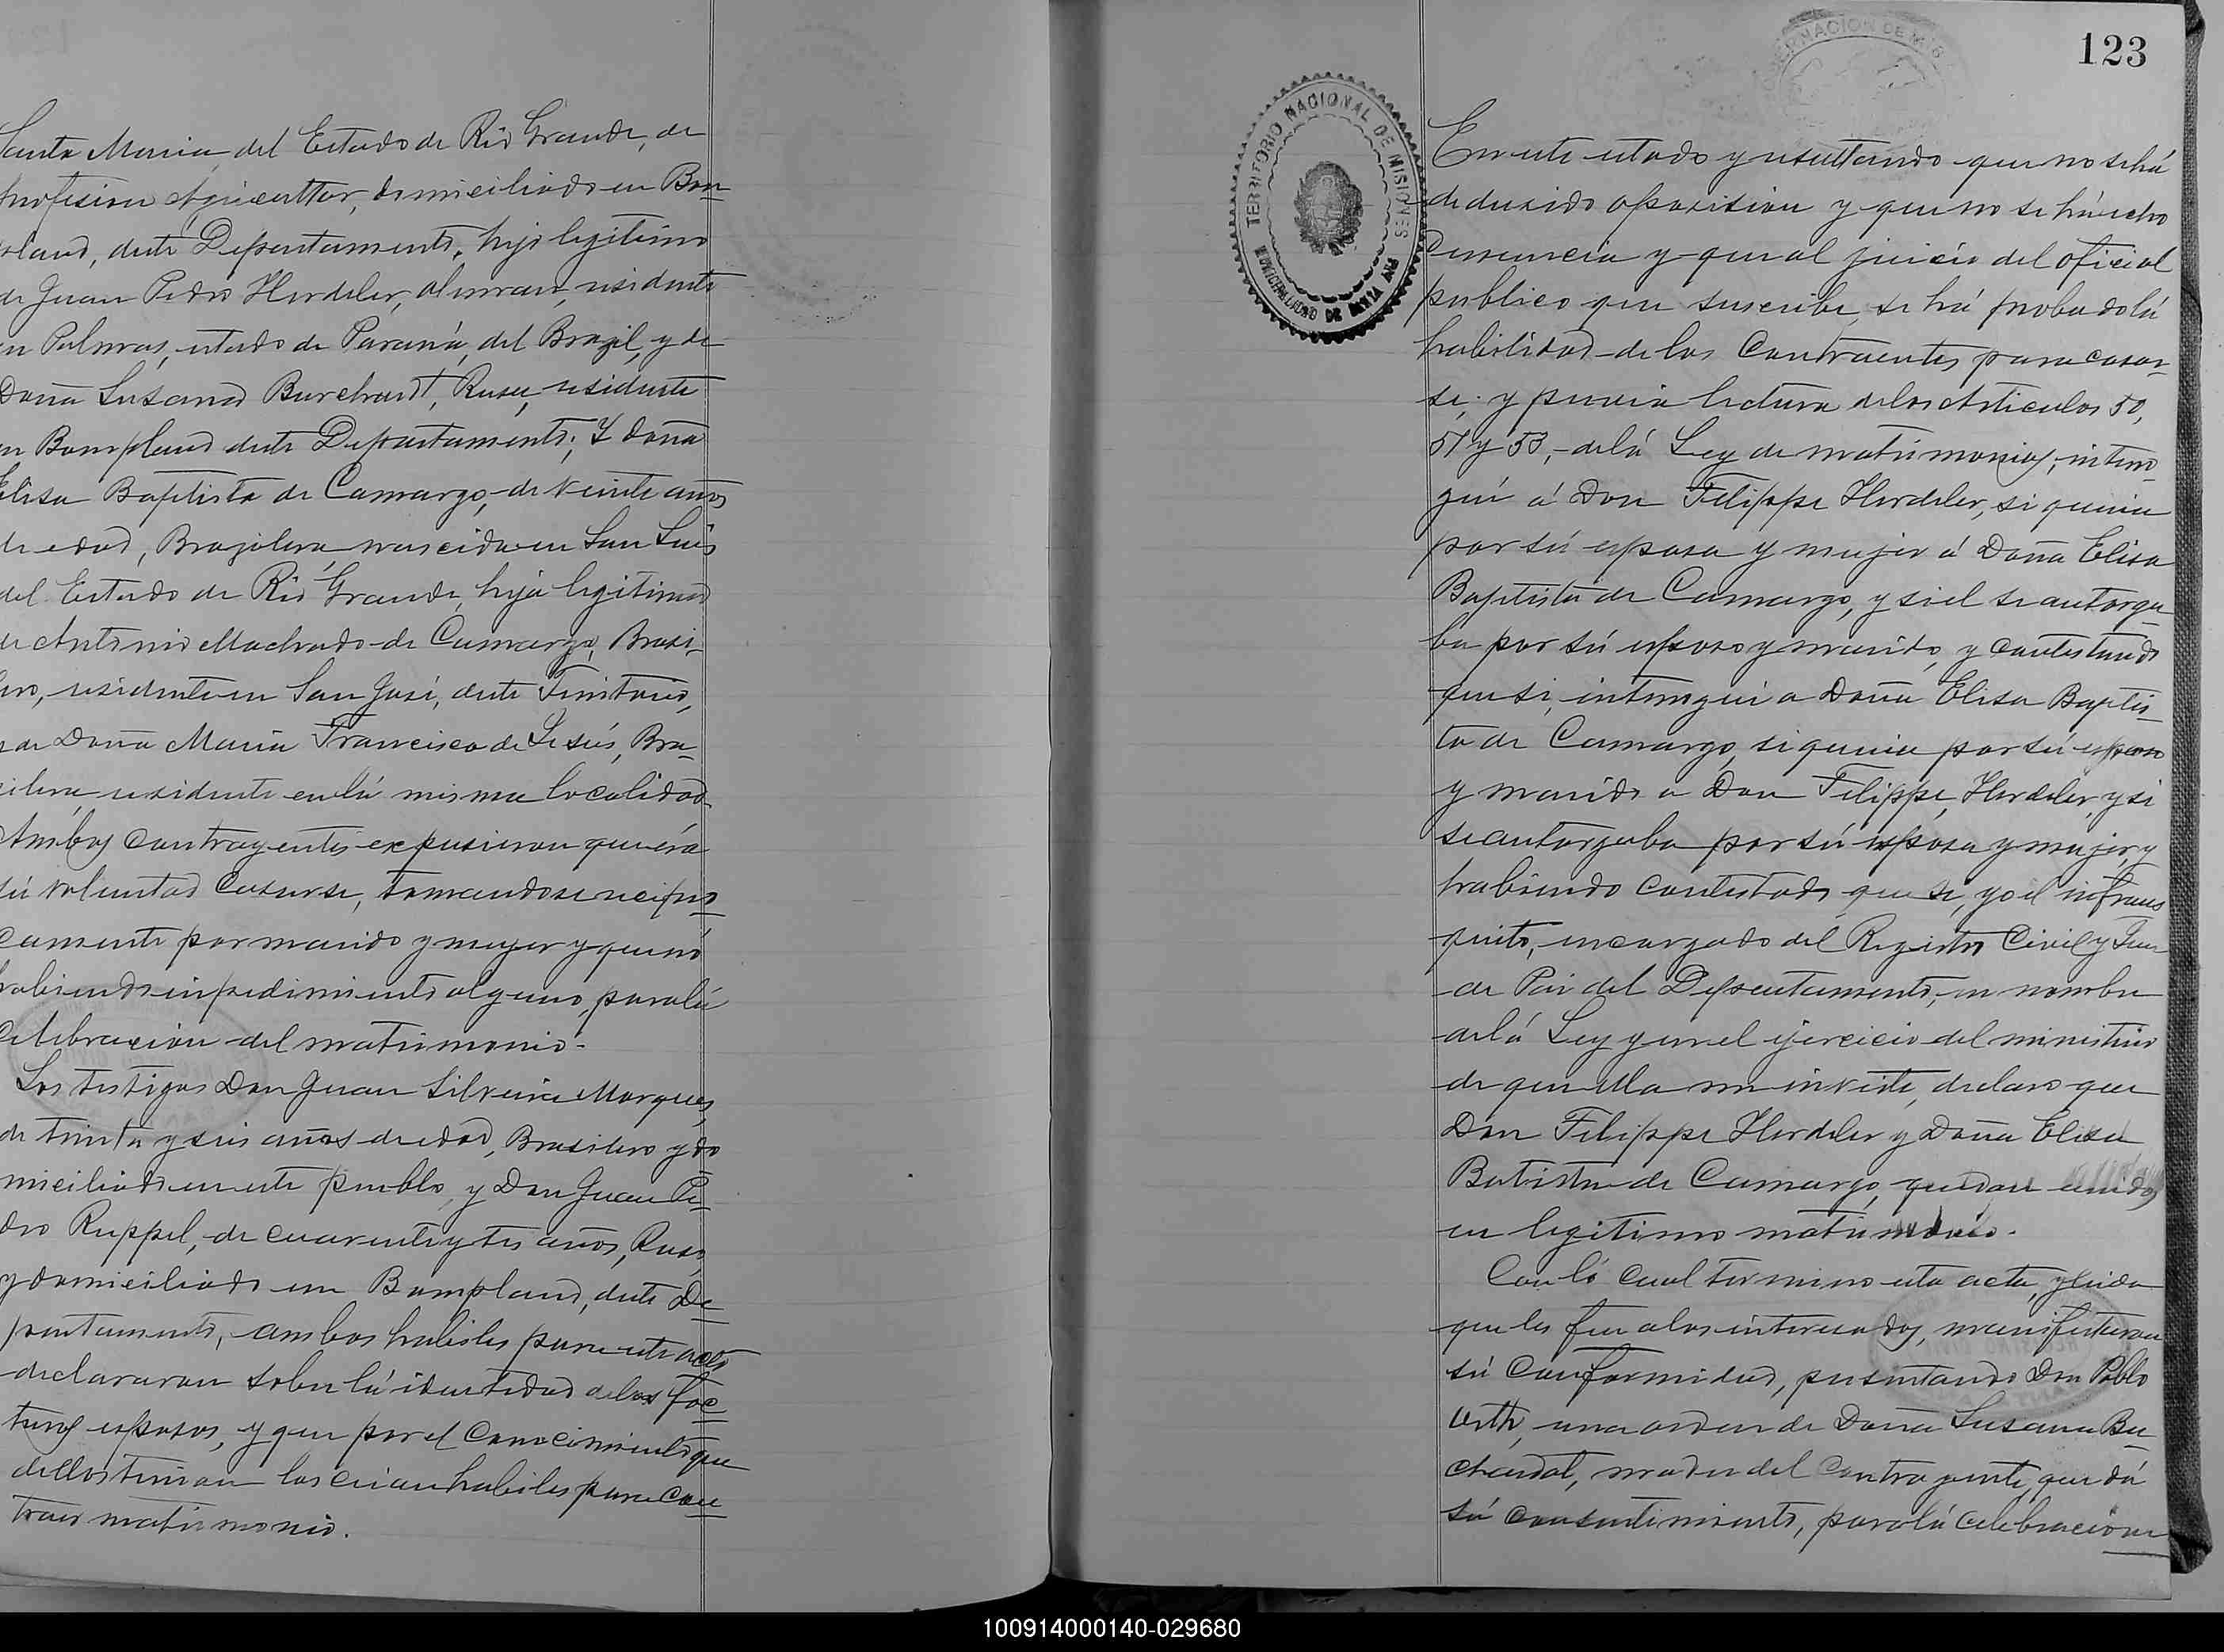 Santa Maria del Estado de Rio Grande, de
profesion Agricultor, domiciliado en Bon-
pland, deste Departamento, hijo legitimo
de Juan Pedro Herdeler, aleman, residente
en Palmas, estado de Paraná, del Brazil, y de
Doña Susana Burchardt, Rusa, residente
en Bompland deste Departamento; Y doña
Elisa Baptista de Camargo, de veinte años
de edad, Brazilera nascida en San Luis
del Estado de Rio Grande, hija legitima
de Antonio Machado de Camargo, Brasi-
lero, residente en San José, deste Territorio,
y de Doña Maria Francisca de Jesús, Bra-
silera, residente en lá misma localidad.
Ambos contrayentes expusieron que éra
sú voluntad casarse, tomandose recipro
camente por marido y muger y que nó
habiendo inpedimiento alguno, para lá
celebracion del matrimonio.
Los testigos Don Juan Silveira Marques,
de trinta y seis años de edad, Brasilero y do
miciliado en este pueblo, y Don Juan Pe-
dro Ruppel, de cuarenta y tres años, Ruso,
y domiciliado en Bompland, deste De
partamento, ambos habiles para este acto
declararon sobre lá identidad de los foc
turos esposos, y que por el conocimiento que
dellos tenian los creian habiles para con
traer matrimonio.
123
GOBERNACION DE MIS
TERRITORIO NACIONAL DE MISIONES
MUNICIPALIDAD DE SANTA ANA
En este estado y resultando que no se há
deducido oposicion y que no se há hecho
denuncia y que al juicio del oficial
publico que suscribe, se há probado lá
habilidad de los contraentes para casar-
se, y previa lectura de los Articulos 50,
51 y 53, de lá Ley de matrimonios, interro-
gué á Don Filippe Herdeler, si queria
por sú esposa y mujer á Doña Elisa
Baptista de Camargo, y si el se autorga
ba por sú esposo y marido, y contestando
que si, interrogué a Doña Elisa Baptis-
ta de Camargo, si queria por sú esposo
y marido a Don Filippe Herdeler, y si
se autorgaba por sú esposa y mujer, y
habiendo contestado que si, yo el infraes
crito, encargado del Registro Civil y Juez
de Paz del Departamento, en nombre
de lá Ley y en el ejercicio del ministerio
de que ella me inviste, declaro que
Don Filippe Herdeler y Doña Elisa
Batista de Camargo, quedan unidos
en legitimo matrimonio.
Con ló cual termino esta acta, y leida
que les fue a los interesados, manifestaron
sú conformidad, presentando Don Pablo
Uerth, una orden de Doña Susana Bu-
chardt, madre del contrayente, que dá
sú consentimiento, para lá celebracion
100914000140-029680